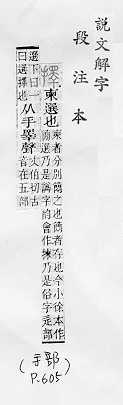 說文解字
段注本
擇
柬選也
柬者分別簡之也簡者存也今小徐本作
簡選乃是譌字韵會作揀乃是俗字辵部
選下曰一
曰選擇也
从手睪聲
丈伯切古
音在五部
(手部)
P.605